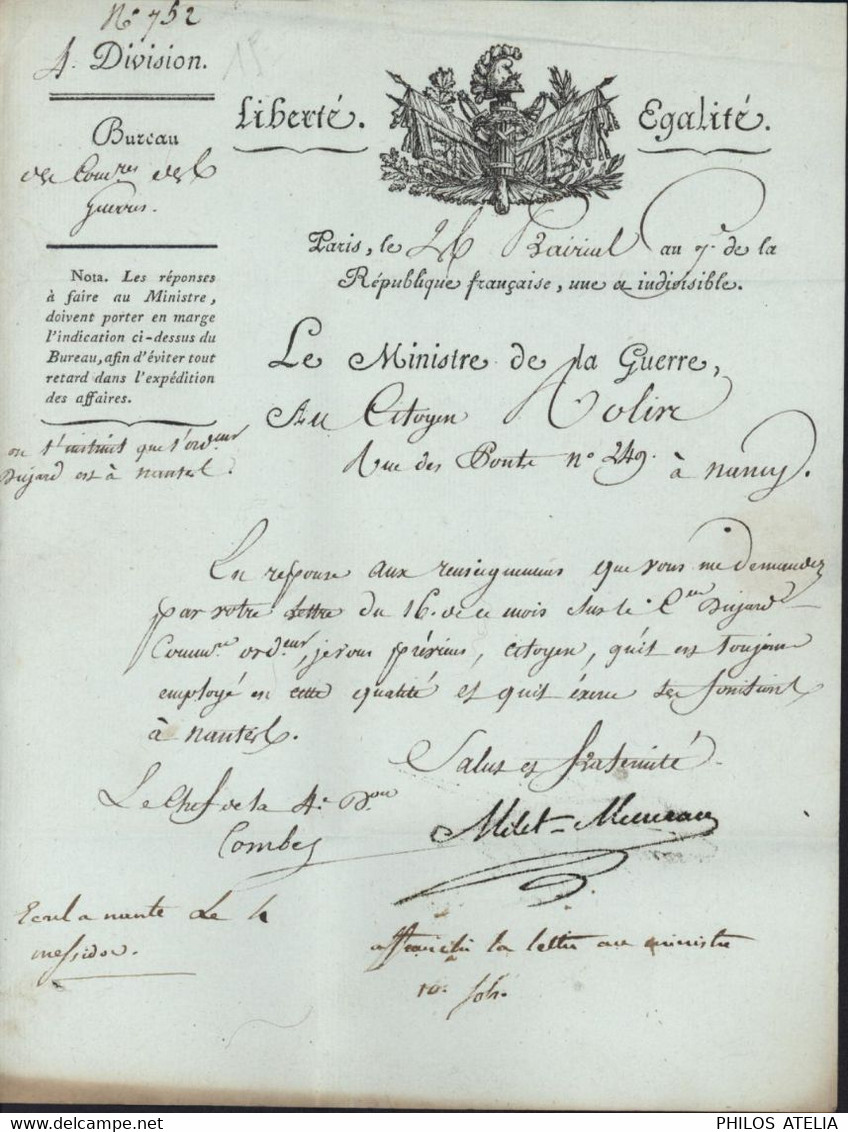 N° 752
4e Division.
Bureau
des Comres des
Guerres.
Nota. Les réponses
à faire au Ministre,
doivent porter en marge
l'indication ci-dessus du
Bureau, afin d'éviter tout
retard dans l'expédition
des affaires.
on l'instruit que l'ordeur
Dujard est à nantes.
Liberté. Egalité.
Paris, le 26 Prairial an 7e de la
République française, une et indivisible.
Le Ministre de la Guerre,
Au Citoyen
Rue des Ponts n° 249. à nancy.
En reponse aux renseignemens que vous me demandez
par votre lettre du 16. de ce mois sur le Cen Dujard
Commre ordeur, je vous préviens, citoyen, qu'il est toujours
employé en cette qualité et qu'il éxerce ses fonctions
à nantes.
Salut et fraternité
Le Chef de la 4e Don
Combes
Milet-Mureau
Ecrit a nante le 4
messidor.
affranchi la lettre au ministre
10s
PHILOS ATELIA